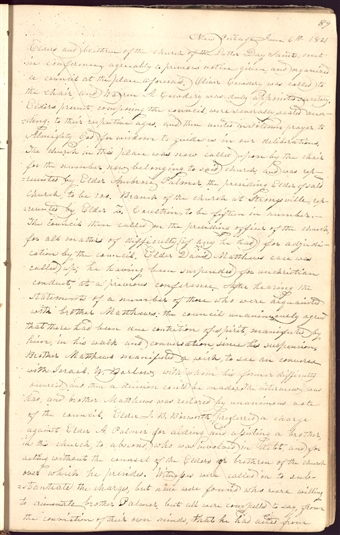 89
New Portage June 6th 1835
Elders and brethren of the church of the Latter Day Saints, met
in conference agreeably a previous notice given, and organized
a council at the place aforesaid. Oliver Cowdery was called to
the chair and Warren A. Cowdery was duly appointed
Elders present, composing the council, were severally seated accor-
ding to their respective ages, and then united in solemn prayer to
Almighty God for wisdom to guide us in our deliberations.
The church in this place was now called upon by the chair
for the number now belonging to said church, and was rep-
resented by Elder Ambrose Palmer, the presiding Elder of said
church, to be Branch of the church at Strongsville, rep-
resented by Elder to be fifteen in number.
The council then called on the presiding officer of the church
for all matters of difficulty (if any he had) for adjudi-
cation by the council. Elder David Matthews case was
called up; he having been suspended for unchristian
conduct, at a previous conference. After hearing the
statements of a number of those who were acquainted
with brother Matthews, the council unanimously agreed
that there had been due contrition of spirit manifested by
him, in his walk and conversation since his suspension.
Brother Matthews manifested a wish to see and converse
with Israel Barlow, with whom his former difficulty
occured, and a decision could be made, the interview was
had, and brother Matthews was restored by unanimous vote
of the council. Elder J. B. Bosworth preferred a charge
against Elder A. Palmer for aiding and assisting a brother
in the church, to abscond who was involved in debt, and for
acting without the counsel of the Elders or brethren of the church
over which he presides. Witnesses were called on to sub-
stantiate the charge, but none were found who were willing
to criminate brother Palmer, but all were compelled to say, from
the conviction of their own minds, that he had acted from